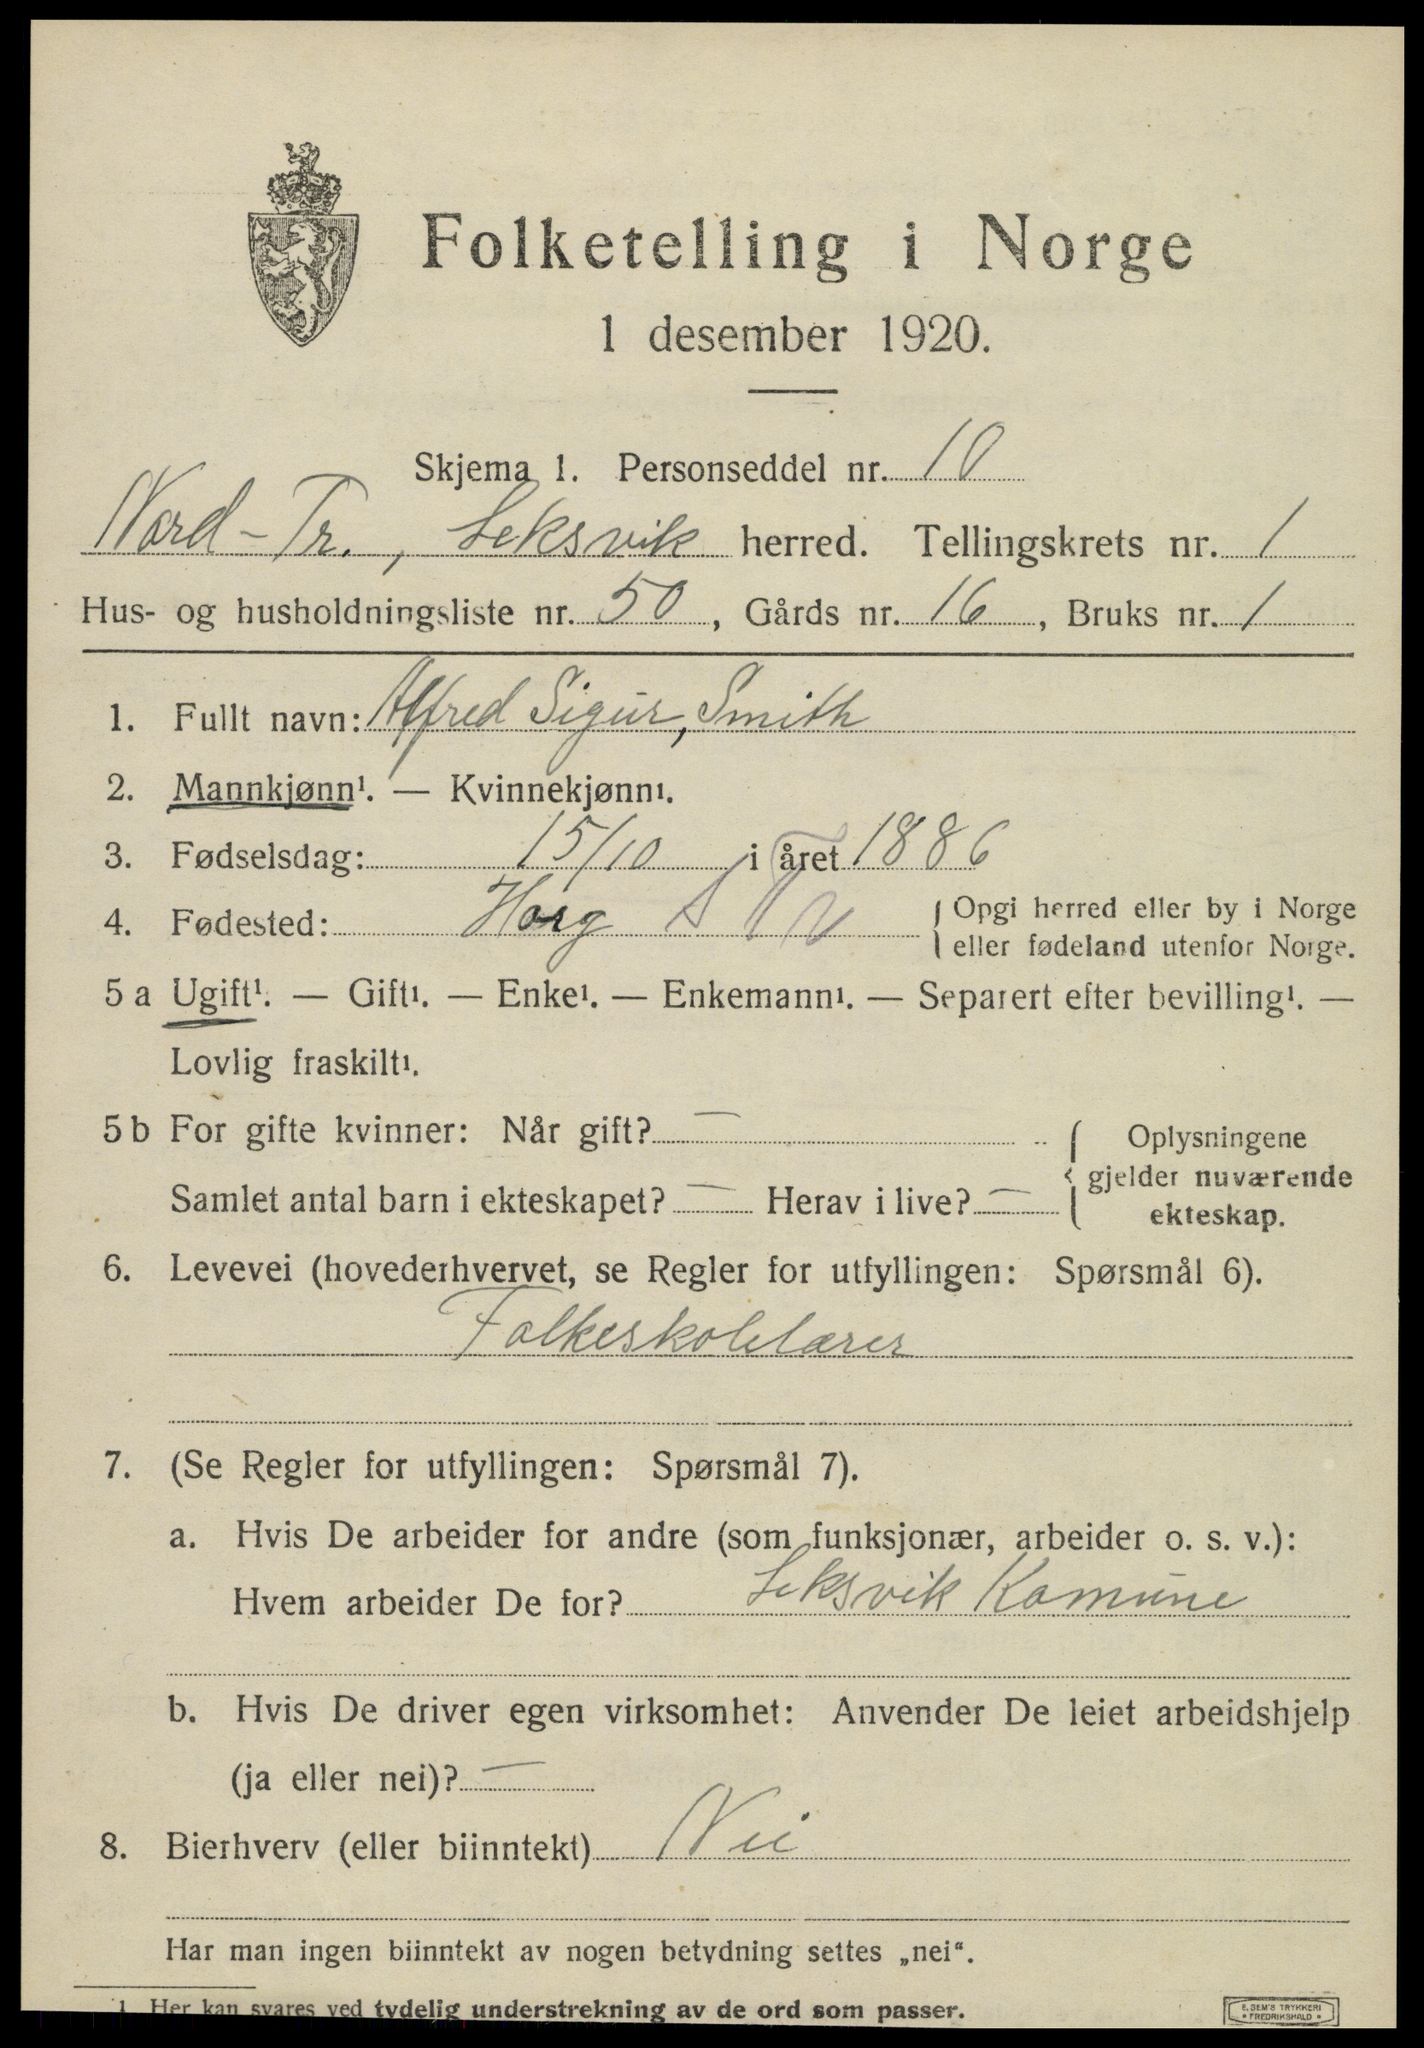 Folketelling i Norge
1 desember 1920.
Skjema 1. Personseddel nr. 10
Nord-Tr., Leksvik herred. Tellingskrets nr. 1
Hus- og husholdningsliste nr. 50, Gårds nr. 16, Bruks nr. 1
1. Fullt navn: Alfred Sigur, Smith
2. Mannkjønn¹. — Kvinnekjønn¹.
3. Fødselsdag: 15/10 i året 1886
4. Fødested: Horg S Tr { Opgi herred eller by i Norge
eller fødeland utenfor Norge.
5 a Ugift¹. — Gift¹. — Enke¹. — Enkemann¹. — Separert efter bevilling¹. —
Lovlig fraskilt¹.
5 b For gifte kvinner: Når gift? —
Samlet antal barn i ekteskapet? — Herav i live? —
{ Oplysningene
gjelder nuværende
ekteskap.
6. Levevei (hovederhvervet, se Regler for utfyllingen: Spørsmål 6).
Folkeskolelærer
7. (Se Regler for utfyllingen: Spørsmål 7).
a. Hvis De arbeider for andre (som funksjonær, arbeider o. s. v.):
Hvem arbeider De for? Leksvik Komune
b. Hvis De driver egen virksomhet: Anvender De leiet arbeidshjelp
(ja eller nei)? —
8. Bierhverv (eller biinntekt) Nei
Har man ingen biinntekt av nogen betydning settes „nei“.
1 Her kan svares ved tydelig understrekning av de ord som passer.
E. SEM'S TRYKKERI
• FREDRIKSHALD •